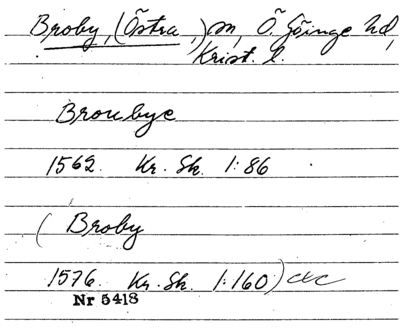 Broby, (Östra,) sn, Ö. Göinge hd,
Krist. l.
Broubye
1562. Kr. Sk. 1:86
( Broby
1576. Kr. Sk. 1:160) etc
Nr 5418